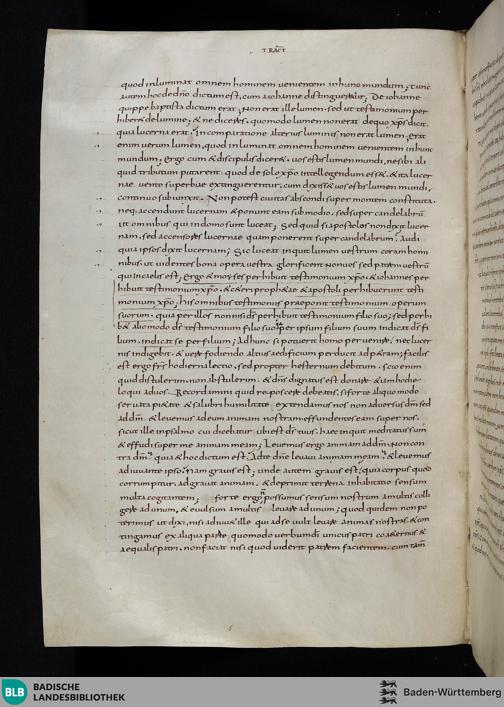 TRACT
quod inluminat omnem hominem uenientem in hunc mundum; tunc
autem hoc de dño dictum est, cum a iohanne distingueretur; De iohanne
quippe baptista dictum erat; Non erat ille lumen. sed ut testimonium per
hiberet de lumine; & ne diceres. quomodo lumen non erat de quo xps dicit.
quia lucerna erat; in comparatione alterius luminis non erat lumen; erat
enim uerum lumen, quod inluminat omnem hominem uenientem in hunc
mundum; ergo cum & discipulis diceret. uos estis lumen mundi, ne sibi ali
quid tributum putarent. quod de solo xpo intellegendum esset. & ita lucer
nae uento superbiae extinguerentur. cum dixisset uos estis lumen mundi,
continuo subiunxit. Non potest ciuitas abscondi super montem constituta.
neq; accendunt lucernam & ponunt eam sub modio. sed super candelabrũ
ut omnibus qui in domo sunt luceat; Sed quid si apostolos non dixit lucer
nam. sed accensores lucernae quam ponerent super candelabrum. Audi
quia ipsos dixit lucernam; Sic luceat inquit lumen uestrum coram homi
nibus. ut uidentes bona opera uestra glorificent non uos sed patrem uestrũ
qui in caelis est; ergo & moyses perhibuit testimonium xpo. & iohannes per
hibuit testimonium xpo. & ceteri prophetae & apostoli perhibuerunt testi
monium xpo; his omnibus testimoniis praeponit testimonium operum
suorum. quia per illos non nisi ds perhibuit testimonium filio suo; sed perhi
bet alio modo ds testimonium filio suo; per ipsum filium suum indicat ds fi
lium. indicat se per filium; Ad hunc si potuerit homo peruenire, nec lucer
nis indigebit. & uere fodiendo altius aedificium perducet ad petram; facilis
est ergo frr hodierna lectio. sed propter hesternum debitum. scio enim
quid distulerim. non abstulerim. & dns dignatus est donare & iam hodie
loqui ad uos. Recordamini quid reposcere debeatis. si forte aliquo modo
seruata pietate & salubri humilitate extendamus nos non aduersus dm sed
ad dm. & leuemus ad eum animam nostram effundentes eam super nos.
sicut ille in psalmo cui dicebatur ubi est ds tuus. haec inquit meditatus sum
& effudi super me animam meam; Leuemus ergo animam ad dm. Non con
tra dm. quia & hoc dictum est; Ad te dne leuaui animam meam. & leuemus
adiuuante ipso. nam grauis est; unde autem grauis est; quia corpus quod
corrumpitur. adgrauat animam. & deprimit terrena inhabitatio sensum
multa cogitantem; forte ergo non possumus sensum nostrum a multis colli
gere ad unum. & euulsum a multis leuare ad unum; quod quidem non po
terimus ut dixi. nisi adiuuet ille qui ad se uult leuare animas nostras. & con
tingamus ex aliqua parte quomodo uerbum di unicus patri coaeternus &
aequalis patri. non faciat nisi quod uiderit patrem facientem. cum tam
BLB BADISCHE
LANDESBIBLIOTHEK
Baden-Württemberg